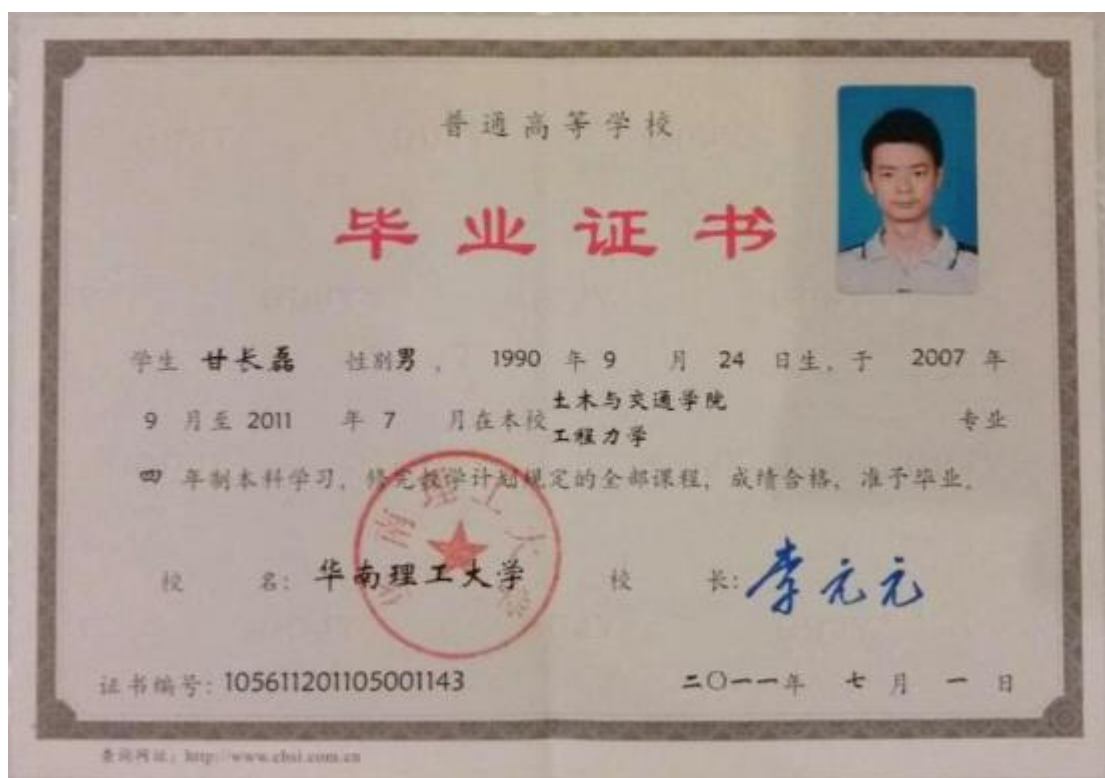 普通高等学校
毕业证书
学生 甘长磊 性别 男 , 1990 年 9 月 24 日生, 于 2007 年
9 月至 2011 年 7 月在本校 土木与交通学院
工程力学 专业
四 年制本科学习, 修完教学计划规定的全部课程, 成绩合格, 准予毕业。
华南理工大学
校 名: 华南理工大学 校 长: 李元元
证书编号: 105611201105001143 二〇一一年 七 月 一 日
查询网址: http://www.chsi.com.cn